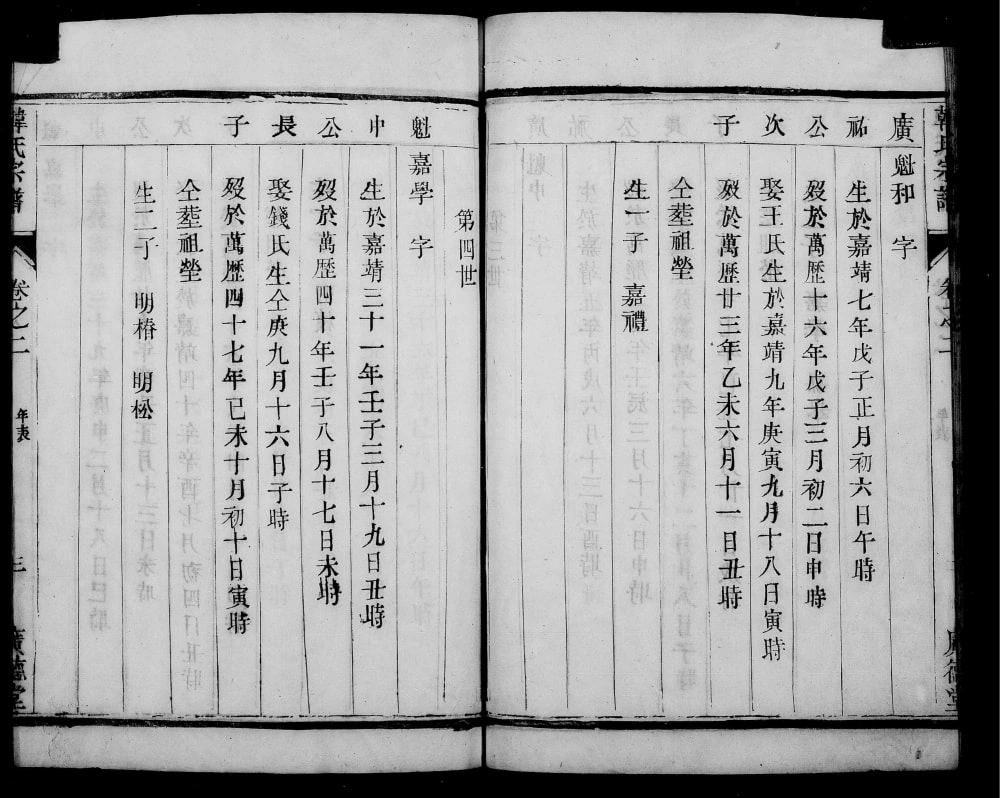 韓氏宗譜
卷之二
年表
廣德堂
廣祐公次子
魁和 字
生於嘉靖七年戊子正月初六日午時
歿於萬歷十六年戊子三月初二日申時
娶王氏生於嘉靖九年庚寅九月十八日寅時
歿於萬歷廿三年乙未六月十一日丑時
仝塟祖塋
生一子 嘉禮
第四世
魁中公長子
嘉學 字
生於嘉靖三十一年壬子三月十九日丑時
歿於萬歷四十年壬子八月十七日未時
娶錢氏生仝庚九月十六日子時
歿於萬歷四十七年己未十月初十日寅時
仝塟祖塋
生二子 明椿 明松
韓氏宗譜
卷之二
年表
三
廣德堂